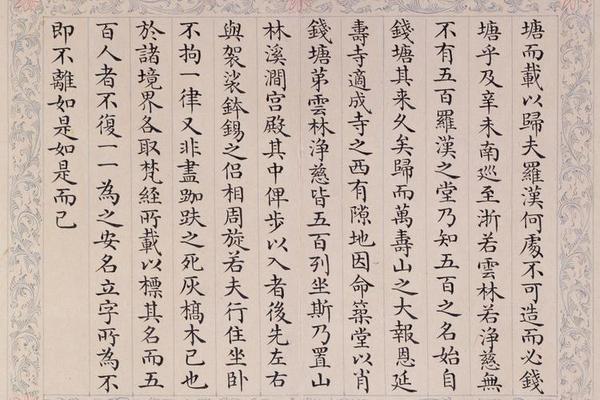 塘而載以歸夫羅漢何處不可造而必錢
塘乎及辛未南巡至浙若雲林若淨慈無
不有五百羅漢之堂乃知五百之名始自
錢塘其来久矣歸而萬壽山之大報恩延
壽寺適成寺之西有隙地因命築堂以肖
錢塘苐雲林淨慈皆五百列坐斯乃置山
林溪澗宫殿其中俾步以入者後先左右
與袈裟鉢錫之侣相周旋若夫行住坐卧
不拘一律又非盡跏趺之死灰槁木已也
於諸境界各取梵經所載以標其名而五
百人者不復一一為之安名立字所為不
即不離如是如是而已